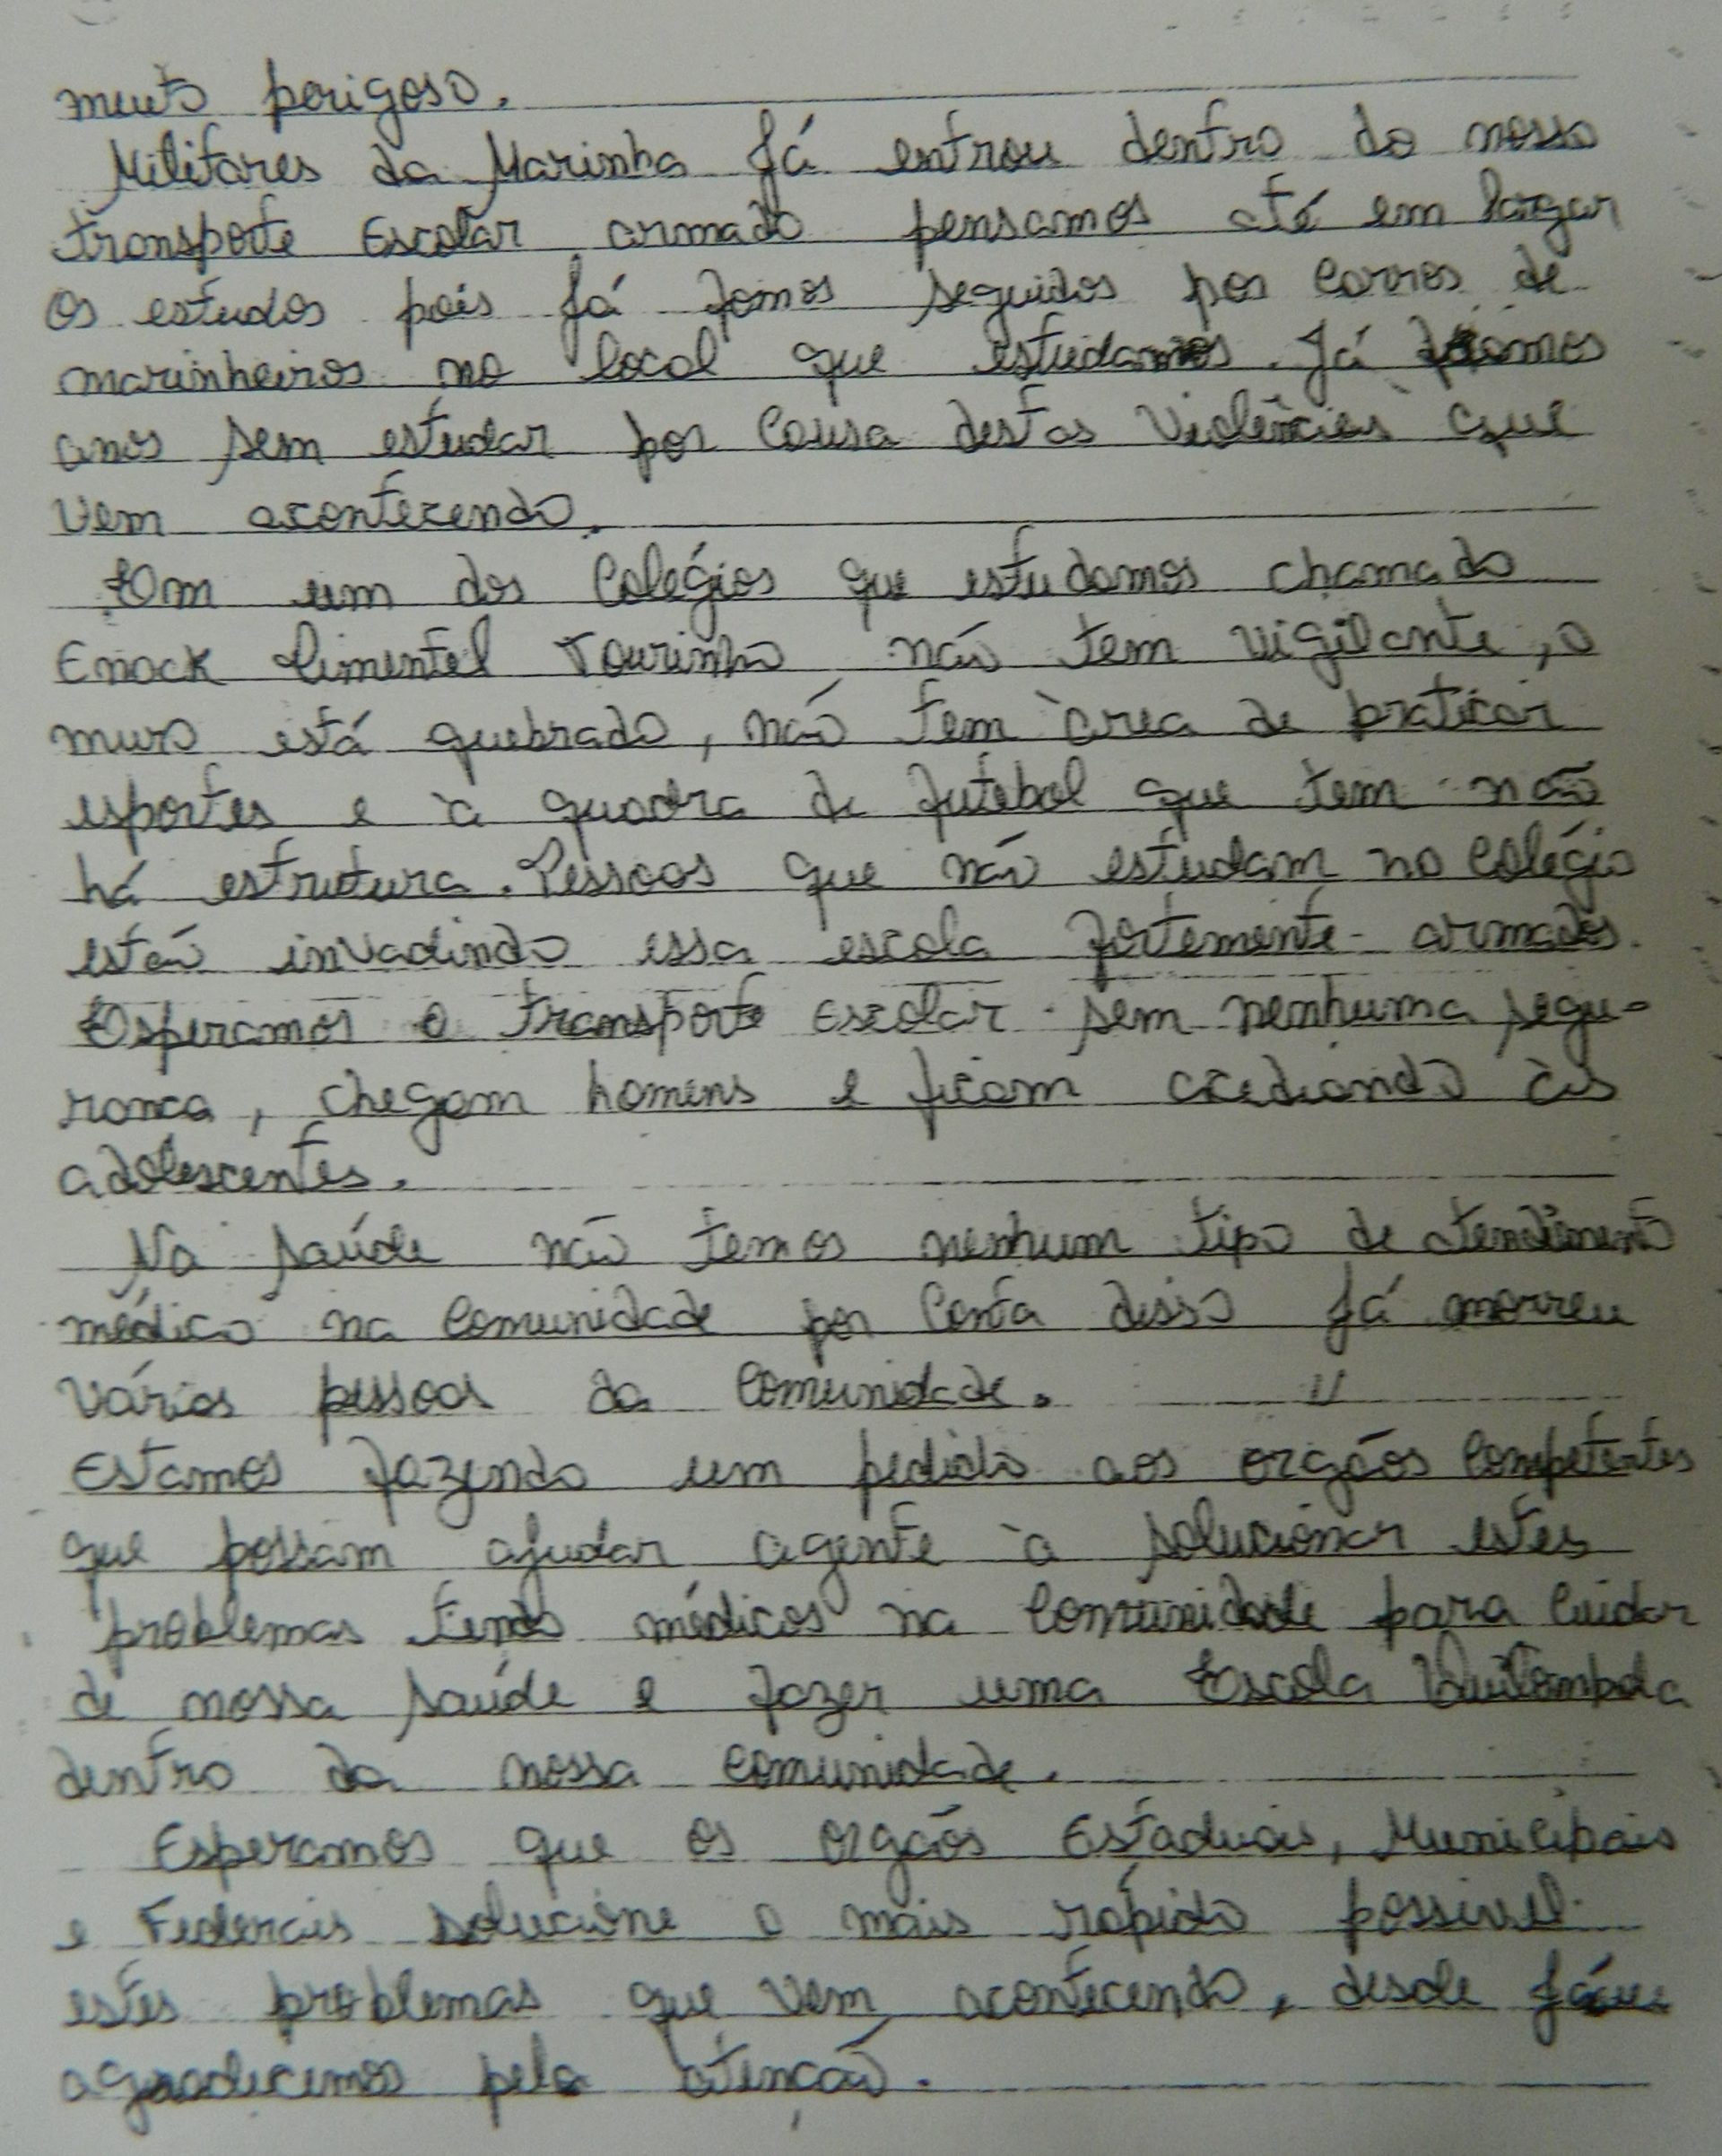 muito perigoso.
Militares da Marinha já entrou dentro do nosso
transporte Escolar armado pensamos até em largar
os estudos pois já fomos seguidos por carros de
marinheiros no local que estudamos. Já ficamos
anos sem estudar por causa destas violências que
vem acontecendo.
Em um dos Colégios que estudamos chamado
Enock Pimentel Tourinho não tem vigilante, o
muro está quebrado, não tem àrea de praticar
esportes e à quadra de futebol que tem não
há estrutura. Pessoas que não estudam no colégio
estão invadindo essa escola fortemente armados.
Esperamos o transporte Escolar sem nenhuma segu-
ranca, chegam homens e ficam acediando às
adolescentes.
Na saúde não temos nenhum tipo de atendimento
médico na comunidade por conta disso já morreu
várias pessoas da comunidade.
Estamos fazendo um pedido aos orgãos competentes
que possam ajudar agente à solucionar estes
problemas tendo médicos na comunidade para cuidar
de nossa saúde e fazer uma Escola Quilombola
dentro da nossa comunidade.
Esperamos que os orgãos Estaduais, Municipais
e Federais solucione o mais rápido possivel
estes problemas que vem acontecendo, desde já
agradecemos pela atenção.